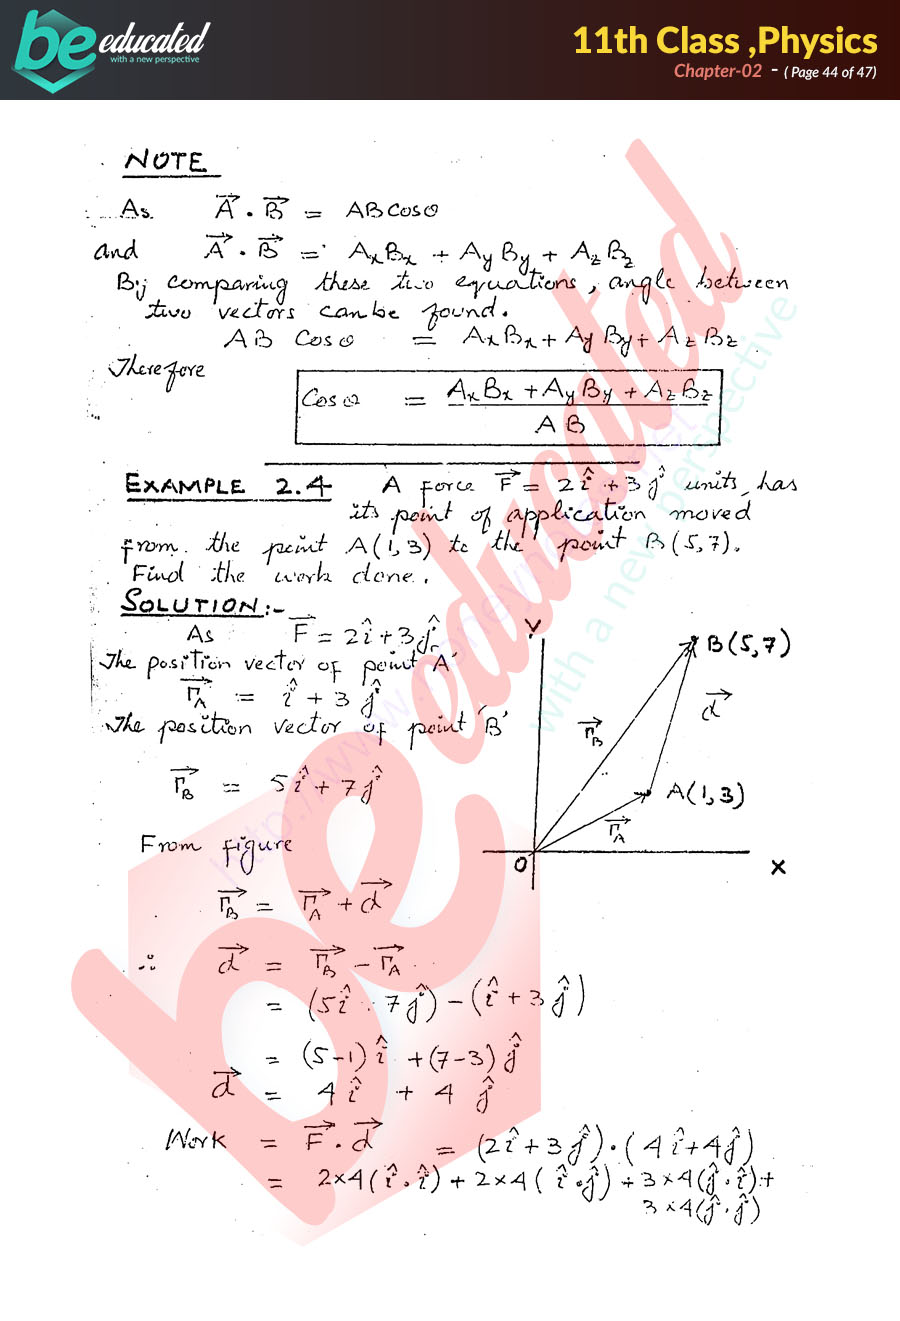 be educated
with a new perspective
11th Class ,Physics
Chapter-02 - ( Page 44 of 47)
NOTE
As A⃗ . B⃗ = ABCosθ
and A⃗ . B⃗ = AxBx + AyBy + AzBz
By comparing these two equations, angle between
two vectors can be found.
AB Cosθ = AxBx + AyBy + AzBz
Therefore
Cosθ = AxBx + AyBy + AzBz
AB
EXAMPLE 2.4 A force F⃗ = 2î + 3ĵ units, has
its point of application moved
from the point A(1,3) to the point B(5,7).
Find the work done.
SOLUTION:-
As F⃗ = 2î + 3ĵ
The position vector of point 'A'
r⃗A = î + 3ĵ
The position vector of point 'B'
r⃗B = 5î + 7ĵ
Y
B(5,7)
d⃗
r⃗B
A(1,3)
r⃗A
O
X
From figure
r⃗B = r⃗A + d⃗
∴ d⃗ = r⃗B – r⃗A
= (5î + 7ĵ) – (î + 3ĵ)
= (5-1)î + (7-3)ĵ
d⃗ = 4î + 4ĵ
Work = F⃗ . d⃗ = (2î + 3ĵ) . (4î + 4ĵ)
= 2×4(î . î) + 2×4(î . ĵ) + 3×4(ĵ . î) +
3×4(ĵ . ĵ)
be educated
with a new perspective